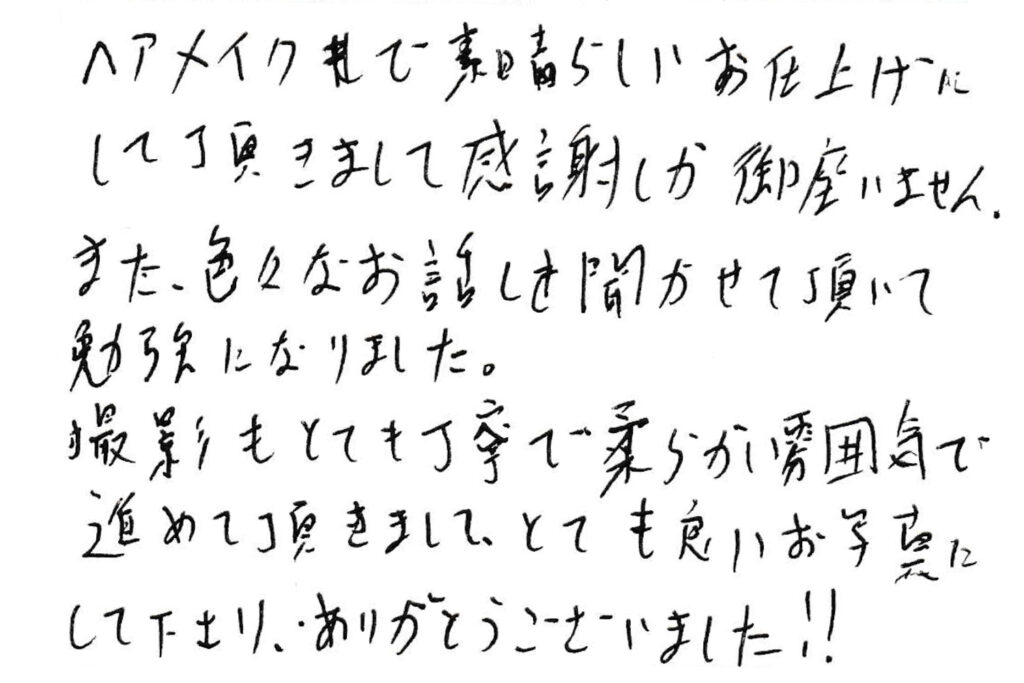 ヘアメイクまで素晴らしいお仕上げに
して頂きまして感謝しか御座いません.
また、色々なお話しを聞かせて頂いて
勉強になりました。
撮影もとても丁寧で柔らかい雰囲気で
進めて頂きまして、とても良いお写真に
して下さり、ありがとうございました!!